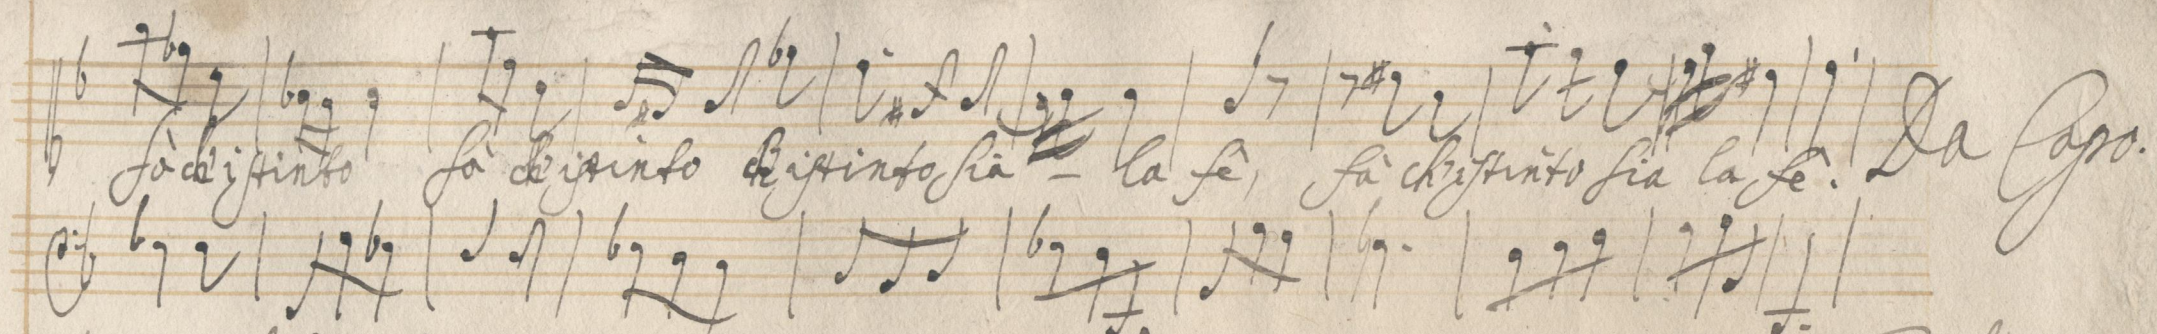 fà ch'istinto fà ch'istinto ch'istinto sia - la fè, fà ch'istinto sia la fè. Da Capo.